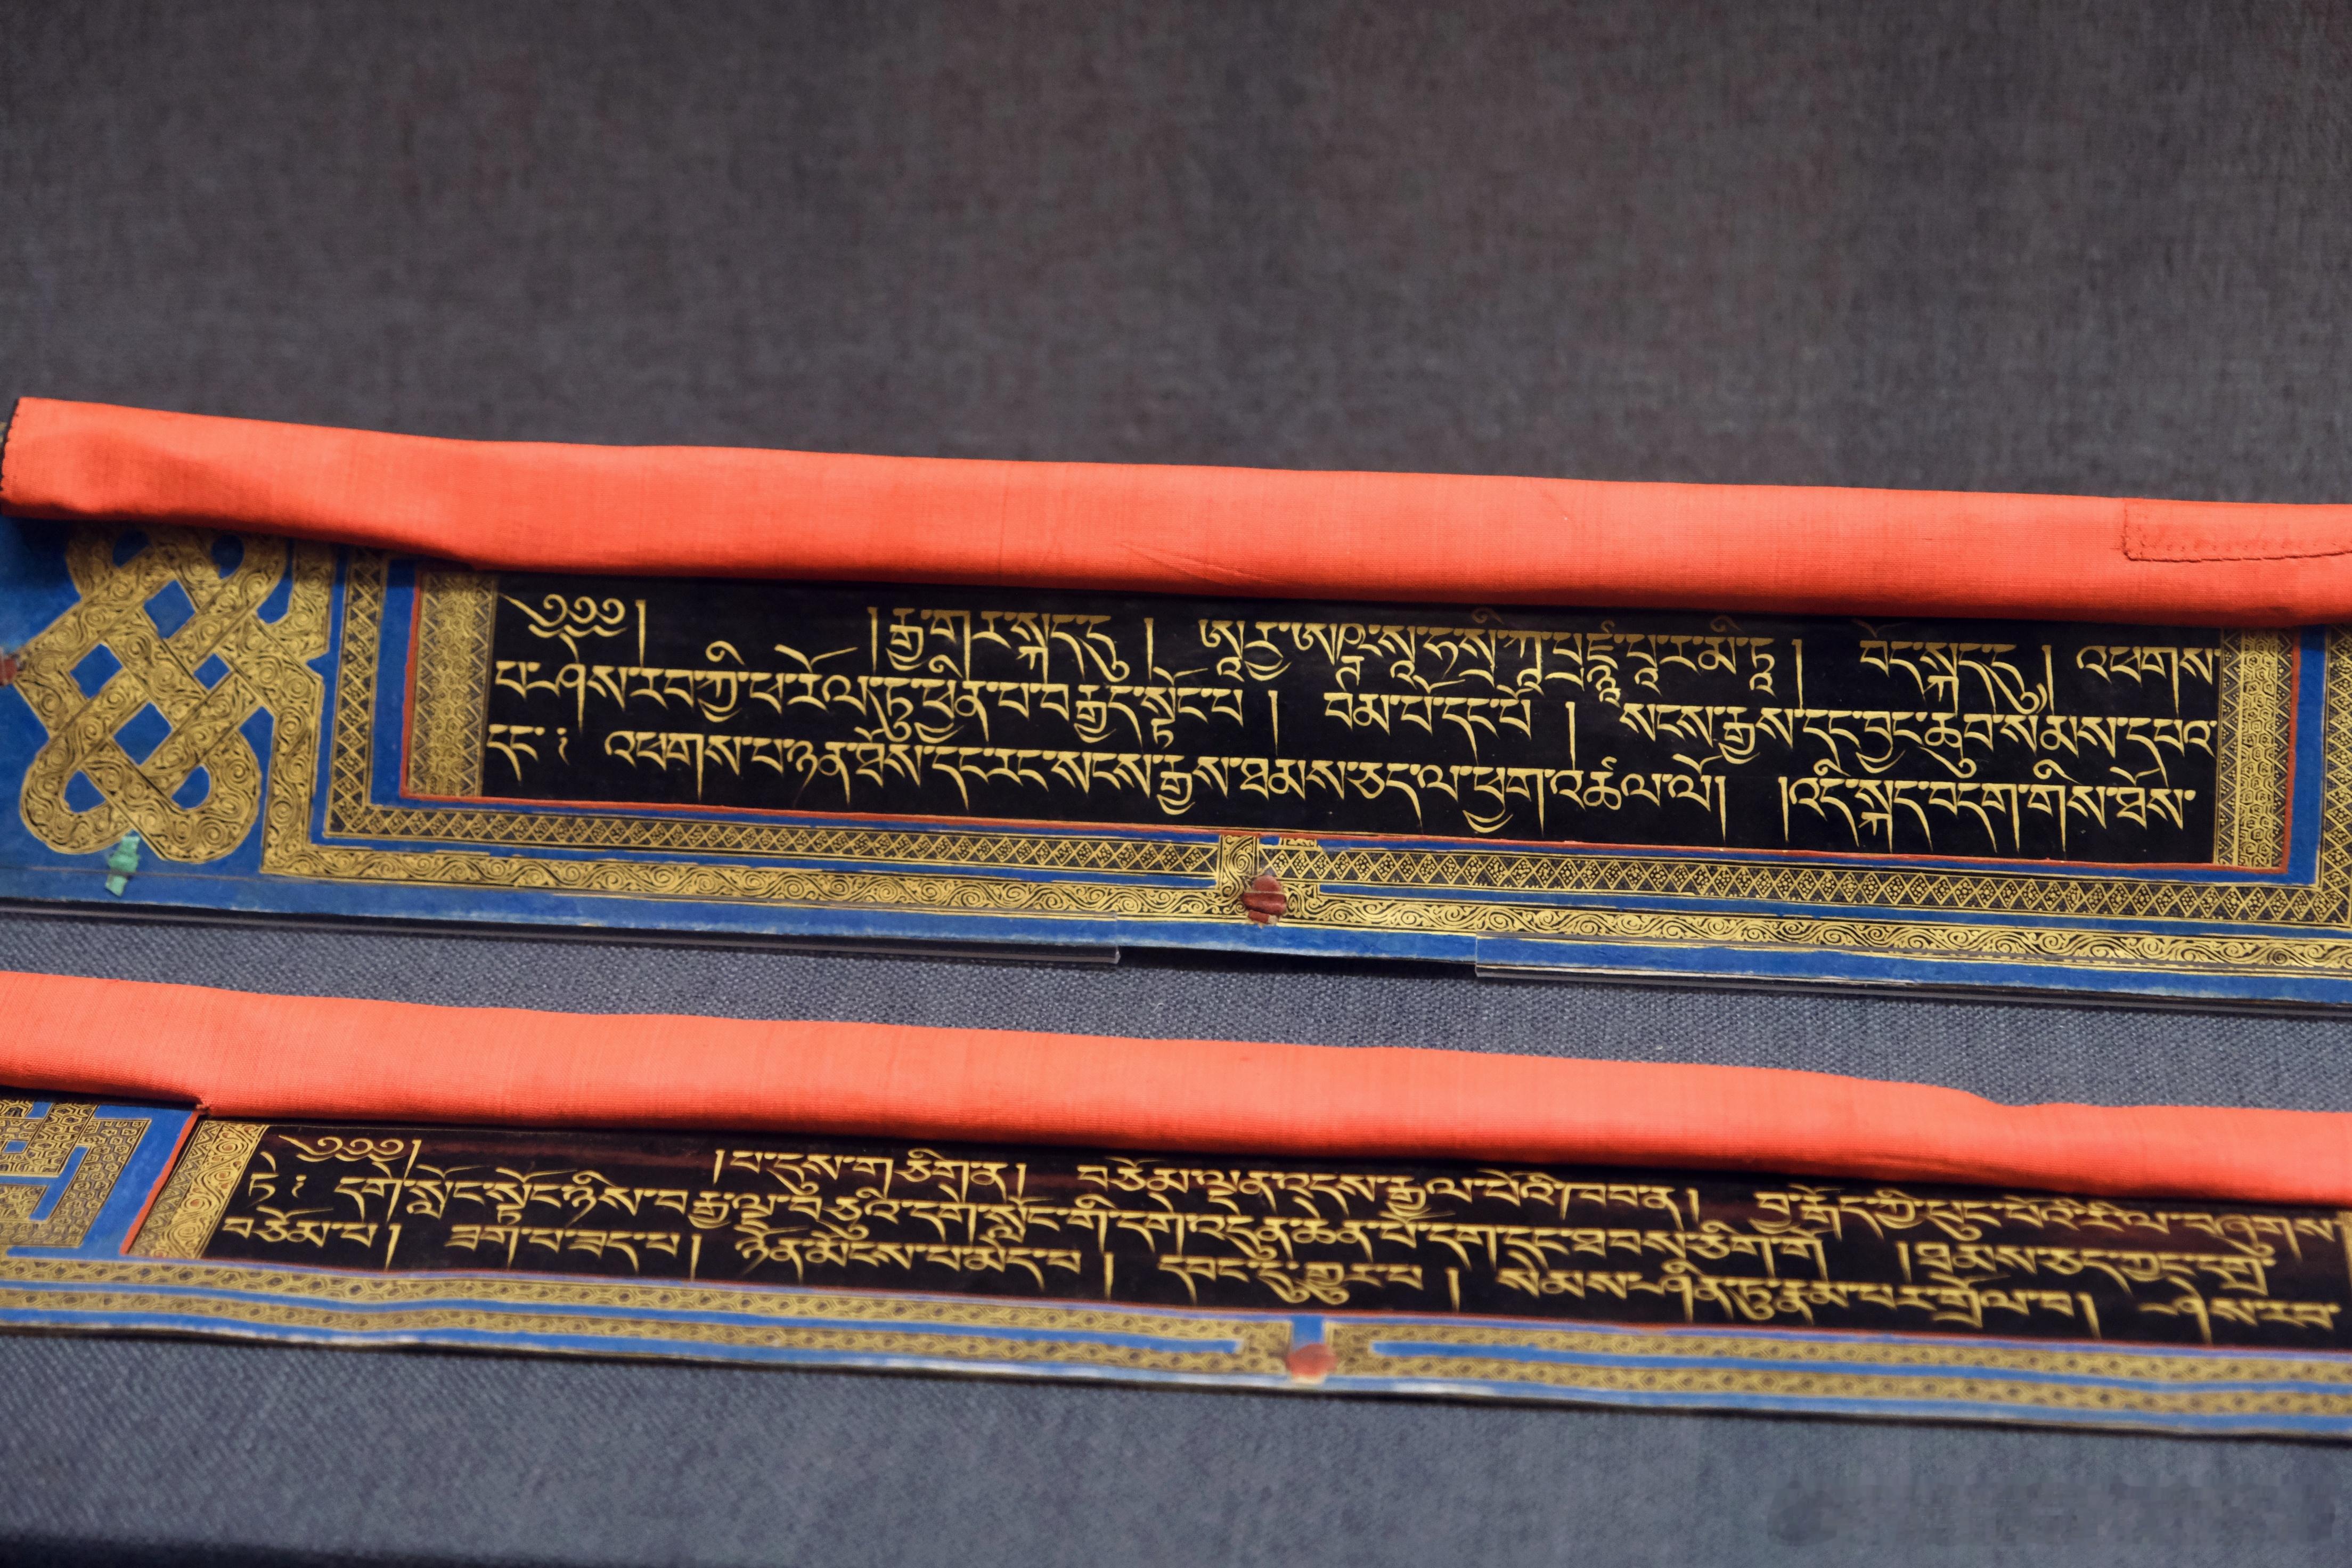 ༄༅༅། །རྒྱ་གར་སྐད་དུ། ཨཱརྱ་ཨཥྚ་སཱ་ཧསྲི་ཀཱ་པྲཛྙཱ་པཱ་ར་མི་ཏཱ། བོད་སྐད་དུ། འཕགས་
པ་ཤེས་རབ་ཀྱི་ཕ་རོལ་ཏུ་ཕྱིན་པ་བརྒྱད་སྟོང་པ། བམ་པོ་དང་པོ། སངས་རྒྱས་དང་བྱང་ཆུབ་སེམས་དཔའ་
དང་༑ འཕགས་པ་ཉན་ཐོས་དང་རང་སངས་རྒྱས་ཐམས་ཅད་ལ་ཕྱག་འཚལ་ལོ། །འདི་སྐད་བདག་གིས་ཐོས་
༄༅༅། །པ་དུས་གཅིག་ན། བཅོམ་ལྡན་འདས་རྒྱལ་པོའི་ཁབ་ན། བྱ་རྒོད་ཀྱི་ཕུང་པོའི་རི་ལ་བཞུགས་
ཏེ༑ དགེ་སློང་སྟོང་ཉིས་བརྒྱ་ལྔ་བཅུའི་དགེ་སློང་གི་དགེ་འདུན་ཆེན་པོ་དག་དང་ཐབས་ཅིག་གོ །ཐམས་ཅད་ཀྱང་དགྲ་
བཅོམ་པ། ཟག་པ་ཟད་པ། ཉོན་མོངས་པ་མེད་པ། དབང་དུ་གྱུར་པ། སེམས་ཤིན་ཏུ་རྣམ་པར་གྲོལ་བ། ཤེས་རབ་